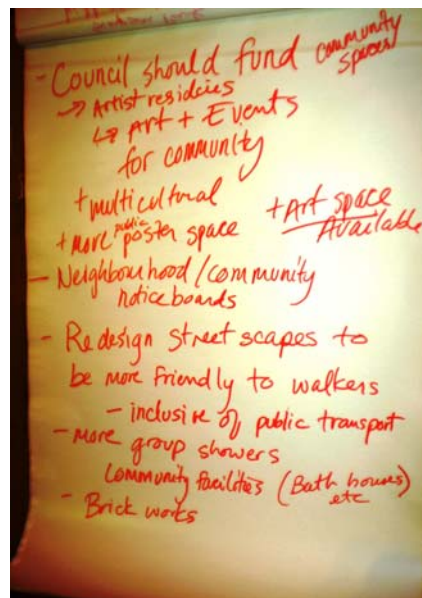 - Council should fund community spaces
→ Artist residcies
↳ Art + Events
for community
+ multicultural
+ more public poster space
+ Art space
Available
- Neighbourhood / community
noticeboards
- Redesign street scapes to
be more friendly to walkers
- inclusive of public transport
- more group showers
Community facilities (Bath houses)
etc
- Brick works